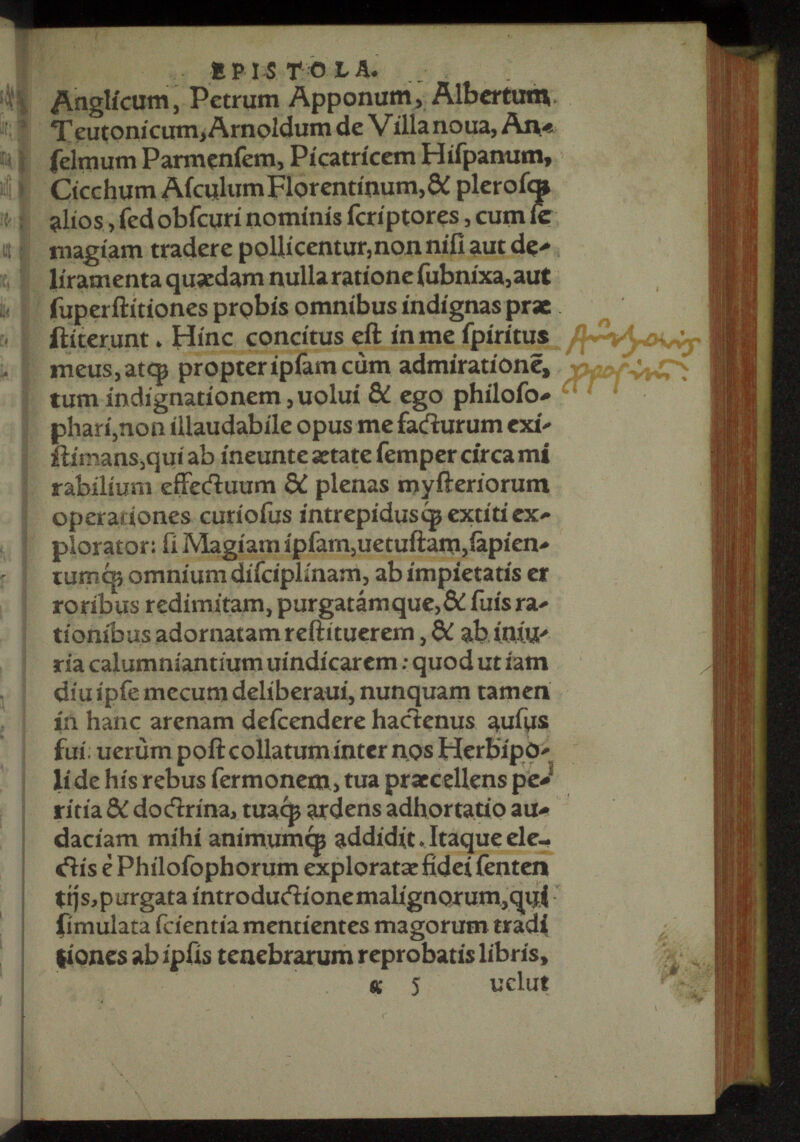 EPISTOLA.
Anglicum, Petrum Apponum, Albertum
Teutonicum, Arnoldum de Villanoua, An-
ſelmum Parmenſem, Picatricem Hiſpanum,
Cicchum Aſculum Florentinum, & pleroſq́;
alios, ſed obſcuri nominis ſcriptores, cum ſe
magiam tradere pollicentur, non niſi aut de-
liramenta quædam nulla ratione ſubnixa, aut
ſuperſtitiones probis omnibus indignas præ
ſtiterunt. Hinc concitus eſt in me ſpiritus
meus, atq; propter ipſam cùm admirationẽ,
tum indignationem, uolui & ego philoſo-
phari, non illaudabile opus me facturum exi-
ſtimans, qui ab ineunte ætate ſemper circa mi
rabilium effectuum & plenas myſteriorum
operationes curioſus intrepidusq; extiti ex-
plorator: ſi Magiam ipſam, uetuſtam, ſapien-
tumq́; omnium diſciplinam, ab impietatis er
roribus redimitam, purgatámque, & ſuis ra-
tionibus adornatam reſtituerem, & ab iniu-
ria calumniantium uindicarem: quod ut iam
diu ipſe mecum deliberaui, nunquam tamen
in hanc arenam deſcendere hactenus auſus
fui. uerùm poſt collatum inter nos Herbipo-
li de his rebus ſermonem, tua præcellens pe-
ritia & doctrina, tuaq́; ardens adhortatio au-
daciam mihi animumq́; addidit. Itaque ele-
ctis è Philoſophorum exploratæ fidei ſenten
tijs, purgata introductione malignorum, qui
ſimulata ſcientia mentientes magorum tradi
tiones ab ipſis tenebrarum reprobatis libris,
α 5 uelut